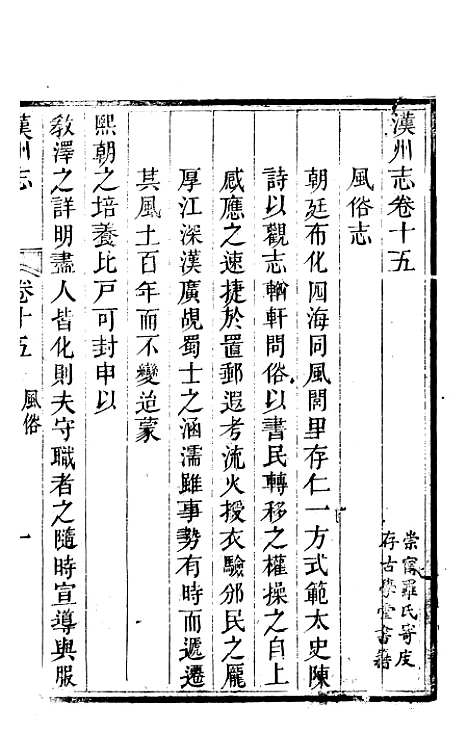 漢州志卷十五
崇寧羅氏寄庋
存古學堂書籍
風俗志
朝廷布化四海同風閭里存仁一方式範太史陳
詩以觀志輶軒問俗以書民轉移之權操之自上
感應之速捷於置郵遐考流火授衣驗邠民之龎
厚江深漢廣覘蜀士之涵濡雖事勢有時而遞遷
其風土百年而不變迨蒙
熙朝之培養比戶可封申以
教澤之詳明盡人皆化則夫守職者之隨時宣導與服
漢州志
卷十五
風俗
一